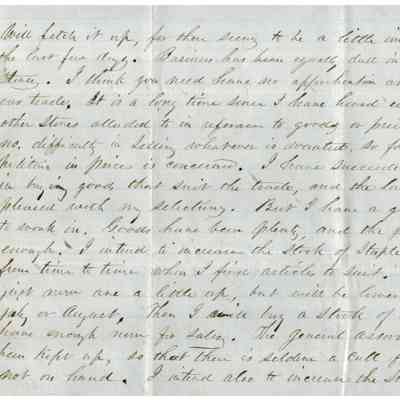 Will fetch it up, for there seems to be a little im
the last few days. Business has been equally dull in
I think you need have no apprehension as
our trade. It is a long time since I have heard
other stores alluded to in reference to goods or pric
no difficulty in selling whatever is wanted, so f
petition in prices is concerned. I have succeede
in buying goods that suit the trade, and the la
pleased with my selections. But I have a g
to work in. Goods have been plenty, and the p
enough. I intend to increase the Stock of Staple
from time to time when I find articles to suit.
just now are a little up, but will be lower
July or August. Then I will buy a stock of
have enough now for sales. The general assor
been kept up, so that there is seldom a call f
not on hand. I intend also to increase the St